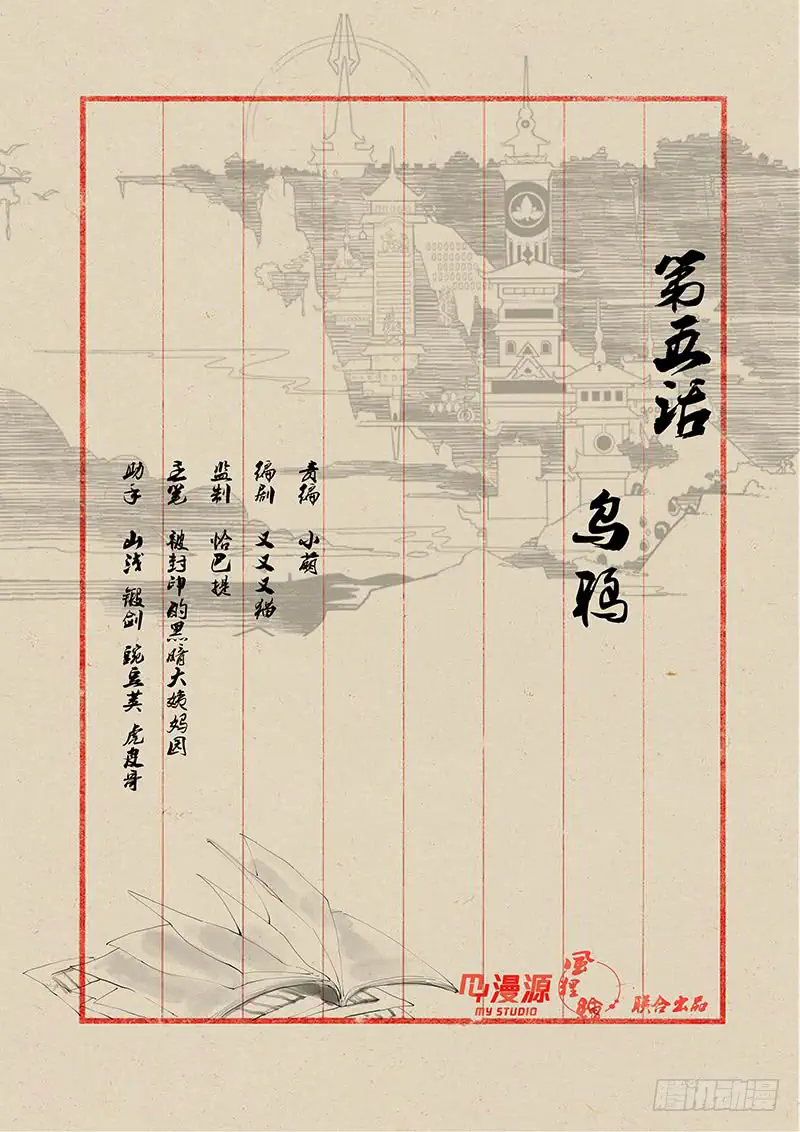 第五话
乌鸦
责编 小萌
编剧 又又又猫
监制 恰巴提
主笔 被封印的黑暗大姨妈园
助手 山浅 锻剑 豌豆荚 虎皮哥
漫源
MY STUDIO
风狸
联合出品
腾讯动漫